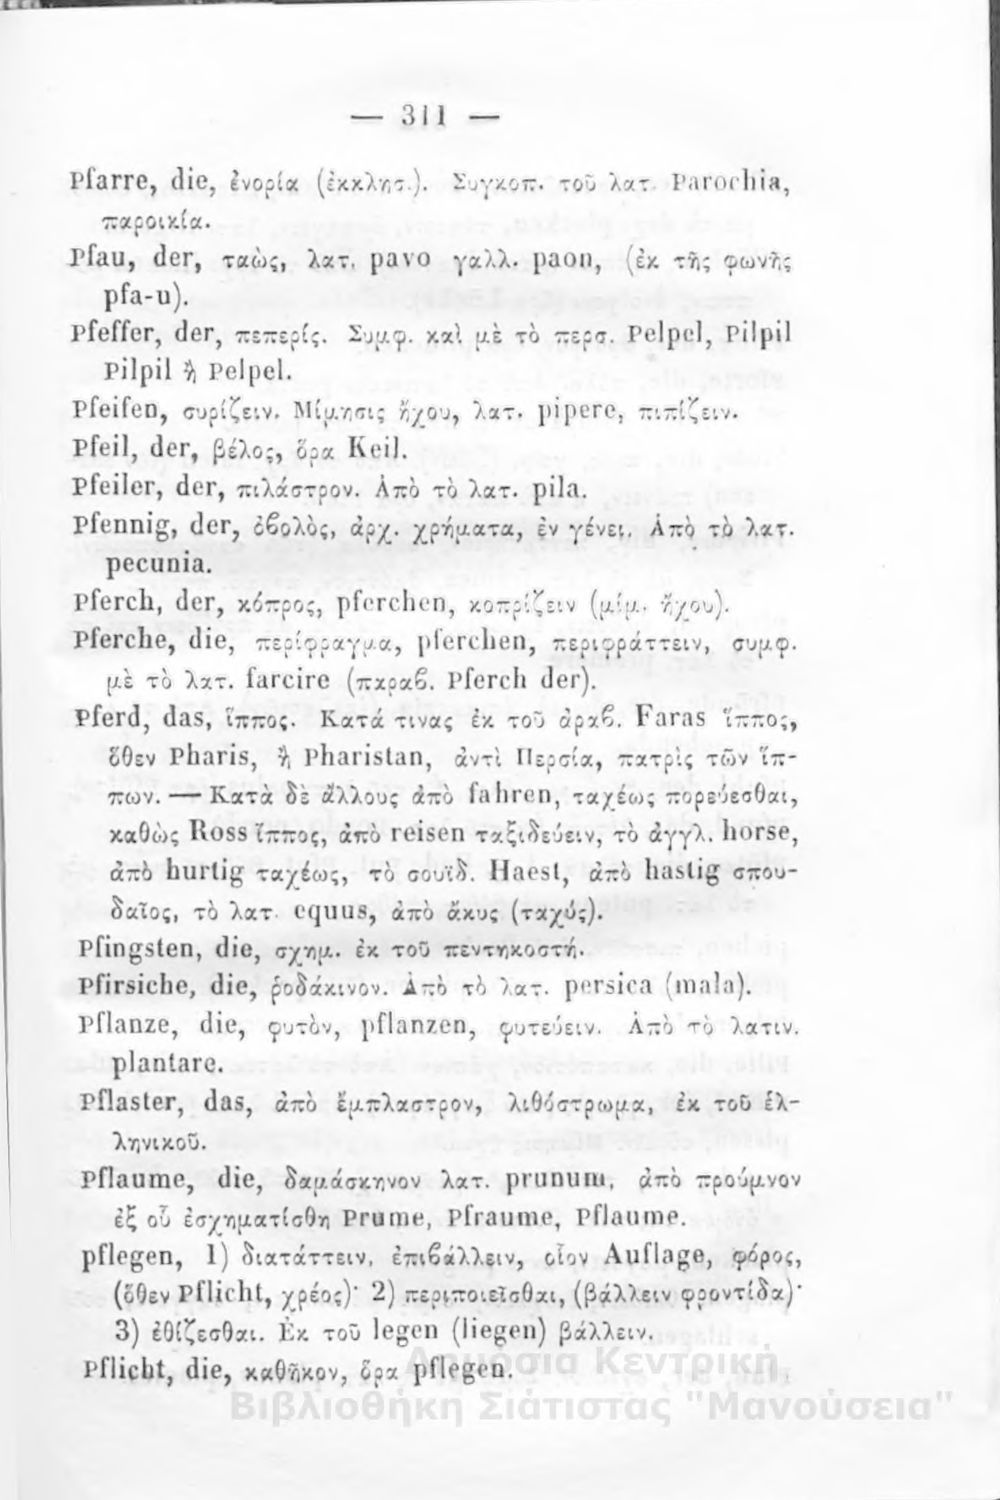 — 311 —
Pfarre, die, ἐνορία (ἐκκλησ.). Συγκοπ. τοῦ λατ. Parochia,
παροικία.
Pfau, der, ταὼς, λατ. pavo γαλλ. paon, (ἐκ τῆς φωνῆς
pfa-u).
Pfeffer, der, πεπερίς. Συμφ. καὶ μὲ τὸ περσ. Pelpel, Pilpil
Pilpil ἢ Pelpel.
Pfeifen, συρίζειν. Μίμησις ἤχου, λατ. pipere, πιπίζειν.
Pfeil, der, βέλος, ὅρα Keil.
Pfeiler, der, πιλάστρον. Ἀπὸ τὸ λατ. pila.
Pfennig, der, ὀβολὸς, ἀρχ. χρήματα, ἐν γένει. Ἀπὸ τὸ λατ.
pecunia.
Pferch, der, κόπρος, pferchen, κοπρίζειν (μίμ. ἤχου).
Pferche, die, περίφραγμα, pferchen, περιφράττειν, συμφ.
μὲ τὸ λατ. farcire (παραβ. Pferch der).
Pferd, das, ἵππος. Κατά τινας ἐκ τοῦ ἀραβ. Faras ἵππος,
ὅθεν Pharis, ἢ Pharistan, ἀντὶ Περσία, πατρὶς τῶν ἵπ-
πων. — Κατὰ δὲ ἄλλους ἀπὸ fahren, ταχέως πορεύεσθαι,
καθὼς Ross ἵππος, ἀπὸ reisen ταξιδεύειν, τὸ ἀγγλ. horse,
ἀπὸ hurtig ταχέως, τὸ σουϊδ. Haest, ἀπὸ hastig σπου-
δαῖος, τὸ λατ. equus, ἀπὸ ἄκυς (ταχύς).
Pfingsten, die, σχημ. ἐκ τοῦ πεντηκοστή.
Pfirsiche, die, ῥοδάκινον. Ἀπὸ τὸ λατ. persica (mala).
Pflanze, die, φυτὸν, pflanzen, φυτεύειν. Ἀπὸ τὸ λατιν.
plantare.
Pflaster, das, ἀπὸ ἔμπλαστρον, λιθόστρωμα, ἐκ τοῦ ἑλ-
ληνικοῦ.
Pflaume, die, δαμάσκηνον λατ. prunum, ἀπὸ προύμνον
ἐξ οὗ ἐσχηματίσθη Prume, Pfraume, Pflaume.
pflegen, 1) διατάττειν, ἐπιβάλλειν, οἷον Auflage, φόρος,
(ὅθεν Pflicht, χρέος)· 2) περιποιεῖσθαι, (βάλλειν φροντίδα)·
3) ἐθίζεσθαι. Ἐκ τοῦ legen (liegen) βάλλειν.
Pflicht, die, καθῆκον, ὅρα pflegen.
Δημόσια Κεντρική
Βιβλιοθήκη Σιάτιστας "Μανούσεια"